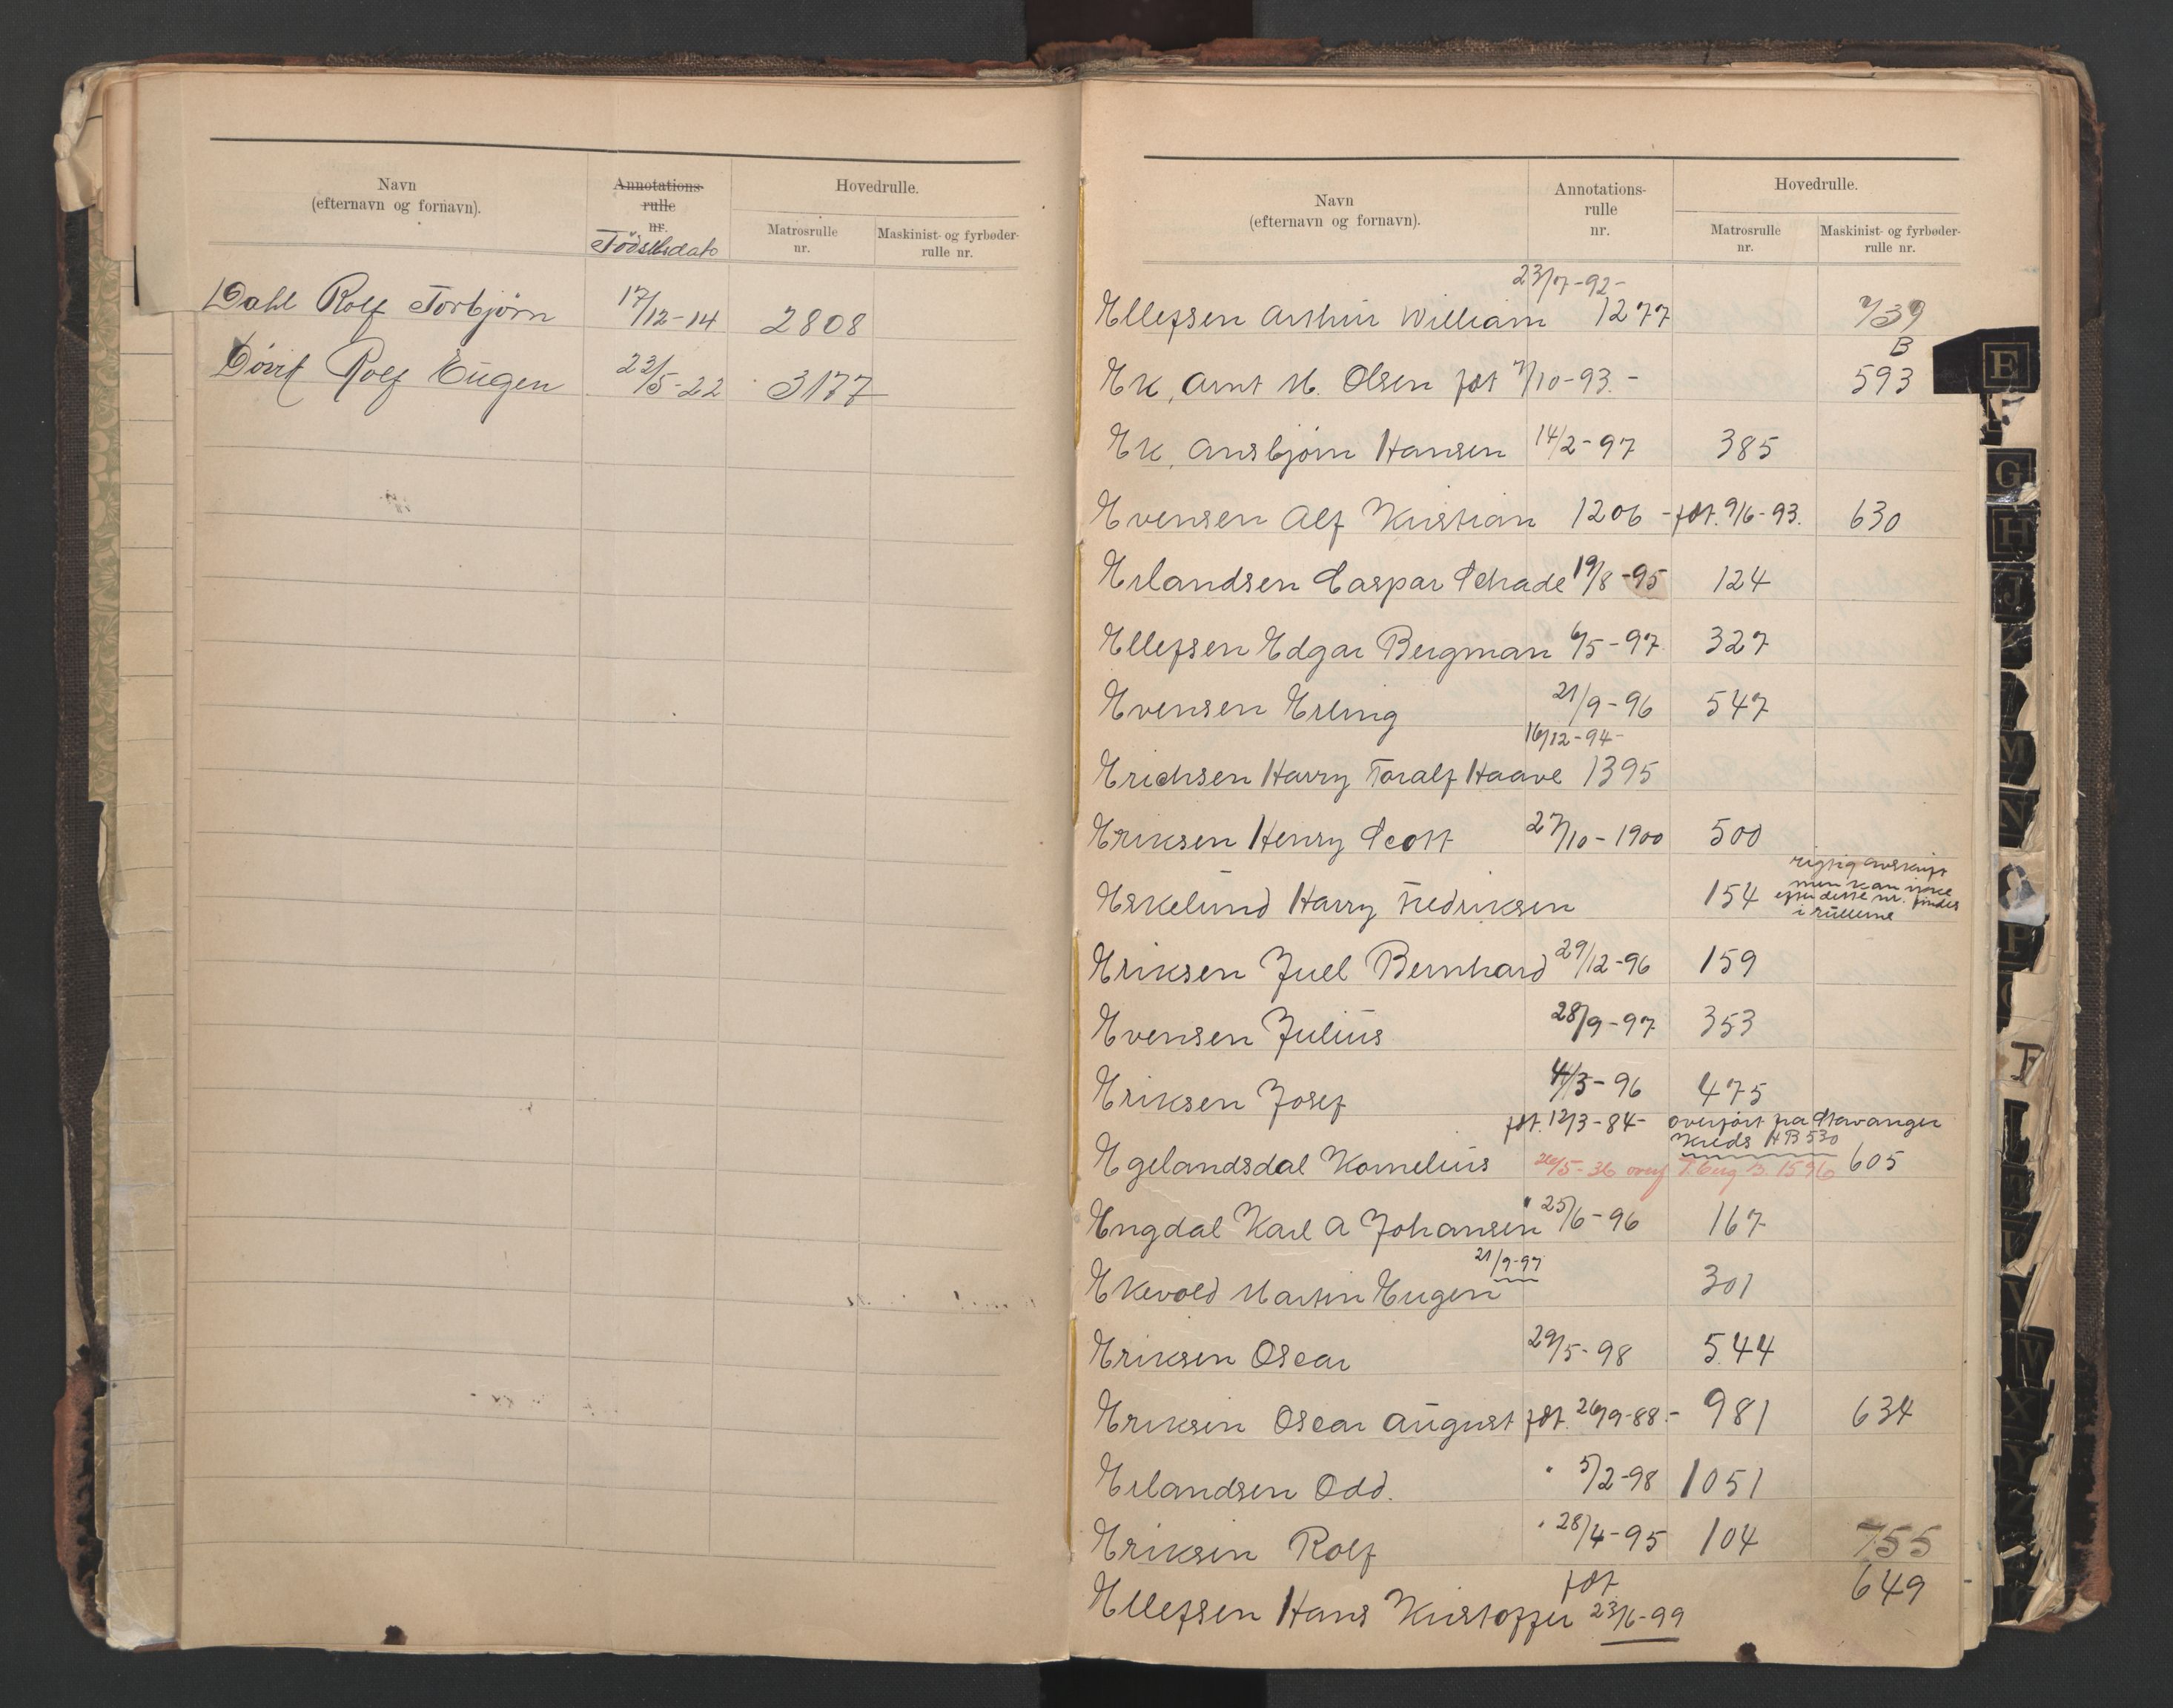 Navn
(efternavn og fornavn).
Annotations-
rulle
nr.
Födselsdato
Hovedrulle.
Matrosrulle
nr.
Maskinist- og fyrbøder-
rulle nr.
Dahl Rolf Torbjörn 17/12-14 2808
Rolf Eugen 23/5-22 3177
Navn
(efternavn og fornavn).
Annotations-
rulle
nr.
Hovedrulle.
Matrosrulle
nr.
Maskinist- og fyrbøder-
rulle nr.
23/7-92-
Ellefsen Arthur William 1277 739
B
Ek, Arnt M. Olsen født 7/10-93.- 593
Ek, Ansbjörn Hansen 14/2-97 385
Evensen Alf Kristian 1206 - født. 9/6-93. 630
Erlandsen Caspar Schade 19/8-95 124
Ellefsen Edgar Bergman 6/5-97 327
Evensen Erling 21/9-96 547
16/12-94-
Erichsen Harry Toralf Haave 1395
Eriksen Henry Scott 27/10-1900 500
rigtig avskrift
men kan ikke
efter dette nr. findes
i rullerne
Eskelund Harry Fredriksen 154
Eriksen Juel Bernhard 29/12-96 159
Evensen Julius 28/9-97 353
Eriksen Josef 4/3-96 475
født. 12/3-84- overført fra Stavanger
Kreds HB 530
Egelandsdal Kornelius 26/5-36 overf T.berg B. 1596 605
Engdal Karl A Johansen " 25/6-96 167
21/9-97
Ekevold Martin Eugen 301
Eriksen Oscar 29/5-98 544
Eriksen Oscar August født. 26/9-88.- 981 634
Erlandsen Odd. " 5/2-98 1051
Eriksen Rolf " 28/4-95 104 755
født
Ellefsen Hans Kristoffer 23/6-99 649
E
F
G
H
J
M
N
O
P
T
L
W
X
Y